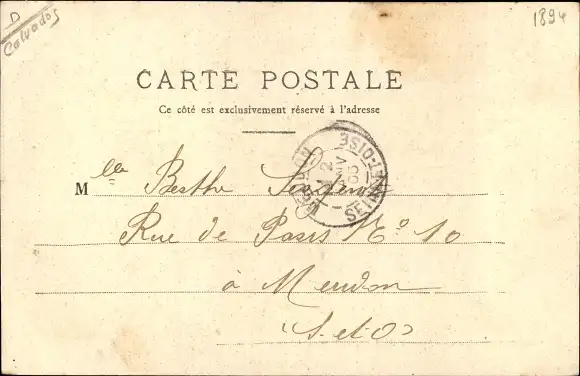 D
Calvados
1894
CARTE POSTALE
Ce côté est exclusivement réservé à l'adresse
Mlle Berthe
Rue de Paris No 10
à Meudon
(S-et-O)
SEINE-ET-OISE
12
03